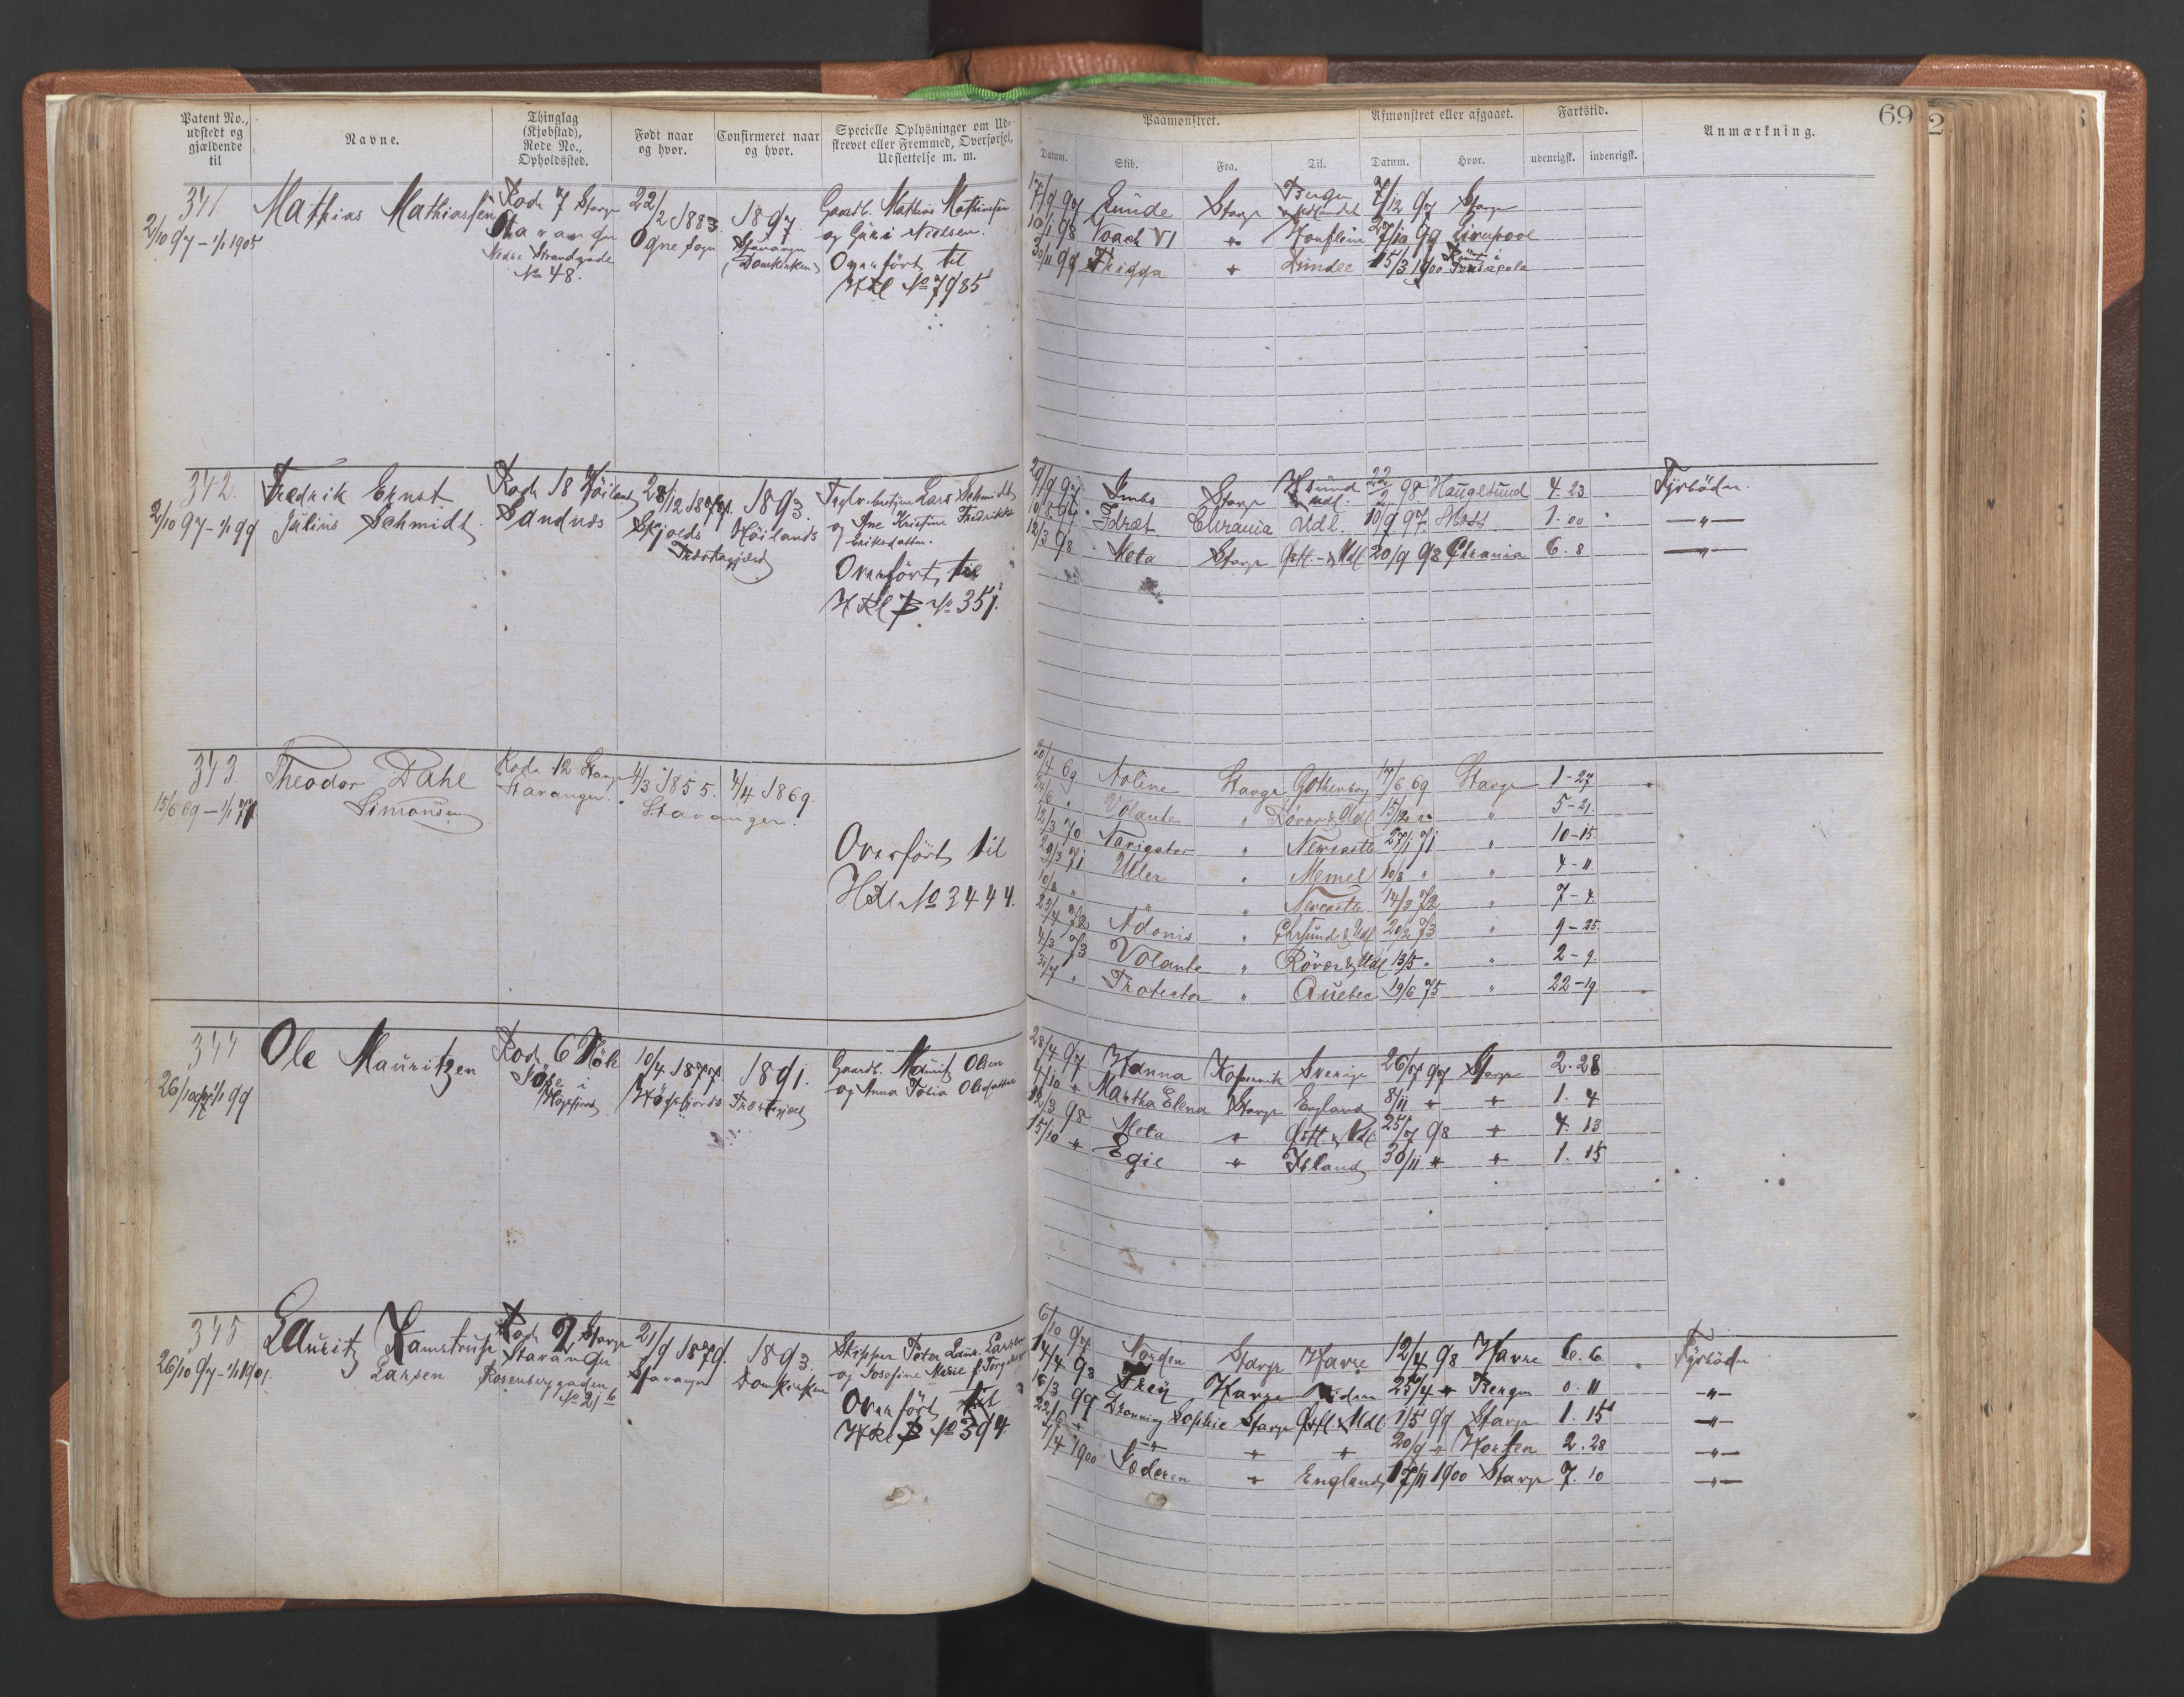 Patent No.,
udstedt og
gjældende
til
Navne.
Thinglag
(Kjøbstad),
Rode No.,
Opholdssted.
Født naar
og hvor.
Confirmeret naar
og hvor.
Specielle Oplysninger om Ud-
skrevet eller Fremmed, Overførsel,
Udslettelse m. m.
Paamønstret.
Afmønstret eller afgaaet.
Fartstid.
Anmærkning.
69
Datum.
Skib.
Fra.
Til.
Datum.
Hvor.
udenrigsk.
indenrigsk.
341
2/10 97 - 1/1 1905
Mathias Mathiassen
Rode 7 Stavgr
Stavanger
Nedre Strandgade
No 48.
22/2 1883.
Ogne Sogn
1897
Stavanger
Domkirken
Gaardb. Mathias Mathiassen
og Guri Nielsen.
Overført til
HRl No 7985
17/9 97 Lunde Stavgr Bergen & Udlandet 7/12 97 Stavgr
10/1 98 Noach VI " Honfleur 27/10 99 Liverpool
30/11 99 Frigga " Dundee 15/3 1900 Rømt i Pensacola
342.
2/10 97 - 1/1 99
Fredrik Ernst
Julius Schmidt.
Rode 18 Höiland
Sandnæs
28/12 1878.
Skjolds
Præstegjeld
1893.
Höilands
Lars Schmidt
og Ane Kristine Fredrikke
Eriksdatter.
Overført til
HRl B No 351.
Imbs Stavgr Hsund & Udl. 22/2 98 Haugesund 4. 23 Fyrböder.
Idræt Chrania Udl. 10/9 97 Moss 1. 00 — " —
12/3 98 Meta Stavgr Østl. & Udl 20/9 98 Chrania 6. 8 — " —
343.
15/6 69 - 1/1 71
Theodor Dahl
Simonsen
Rode 12 Stavgr
Stavanger.
4/3 1855.
Stavanger.
4/4 1869.
Overført til
HRl No 3444.
20/4 69 Noline Stavgr Gothenborg 17/6 69 Stavgr 1-27
24/6 " Volante " Røvær & Udl 15/12 " " 5-21.
12/3 70 Navigator " Newcastle 27/1 71 " 10-15
29/3 71 Uller " Memel 10/8 " " 4-11
10/8 " " " Newcastle 14/3 72 " 7-4
25/4 72 Adonis " Chrsund & Udl 20/2 73 " 9-25.
4/3 73 Volante " Røvær & Udl 13/5 " " 2-9.
31/7 " Protector " Quebec 19/6 75 " 22-19.
344
26/10 97 1/1 99
Ole Mauritzen
Rode 6 Höle
i
Høgsfjord
10/4 1877.
Høgsfjords
1891.
Præstegjeld
Gaardb. Maurits Olsen
og Anna Tobia Olsdatter
28/4 97 Hanna Kopervik Sverige 26/7 97 Stavgr 2. 28
4/10 " Martha Elena Stavgr England 8/11 " " 1. 4
12/3 98 Meta " Østl. & Udl. 25/7 98 " 4. 13
15/10 " Egil " Island 30/11 " " 1. 15
345
26/10 97 - 1/1 1901.
Lauritz Kamstrup
Larsen
Rode 2 Stavgr
Stavanger
Rosenberggaden
No 21 b
21/9 1879.
Stavanger
1893.
Domkirken
Skipper Peter Laur. Larsen
og Josefine Marie f. Torgersen
Overført til
HRl B No 394
6/10 97 Norden Stavgr Havre 12/4 98 Havre 6. 6 Fyrböder
14/4 98 Frey Havre Viden 25/4 " Bergen 0. 11 — " —
16/3 99 Dronning Sophie Stavgr Østl. & Udl. 1/5 99 Stavgr 1. 15 — " —
22/6 " — " — " " 20/9 " Horten 2. 28 — " —
1900 Jæderen " England 17/11 1900 Stavgr 7. 10 — " —